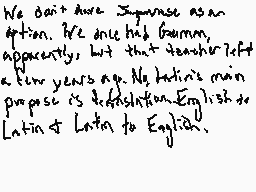 We don't have Japanese as an
option. We once had German,
apparently, but that teacher left
a few years ago. No, Latin's main
purpose is translation. English to
Latin & Latin to English.